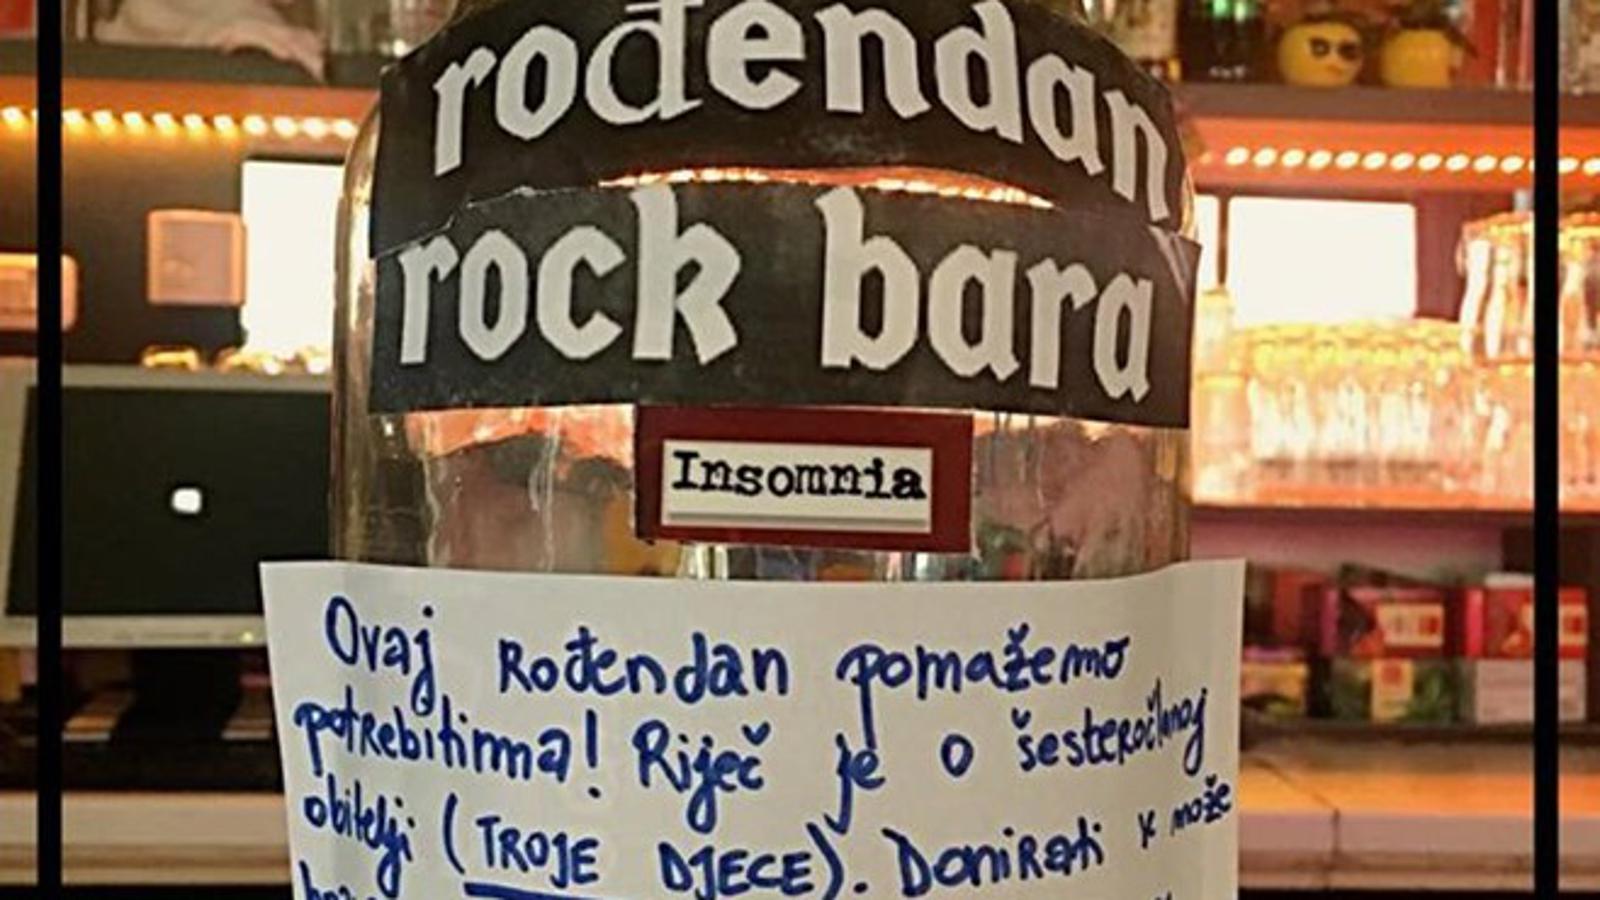 rođendan
rock bara
Insomnia
Ovaj Rođendan pomažemo
potrebitima! Riječ je o šesteročlanoj
obitelji (TROJE DJECE). Donirati se može